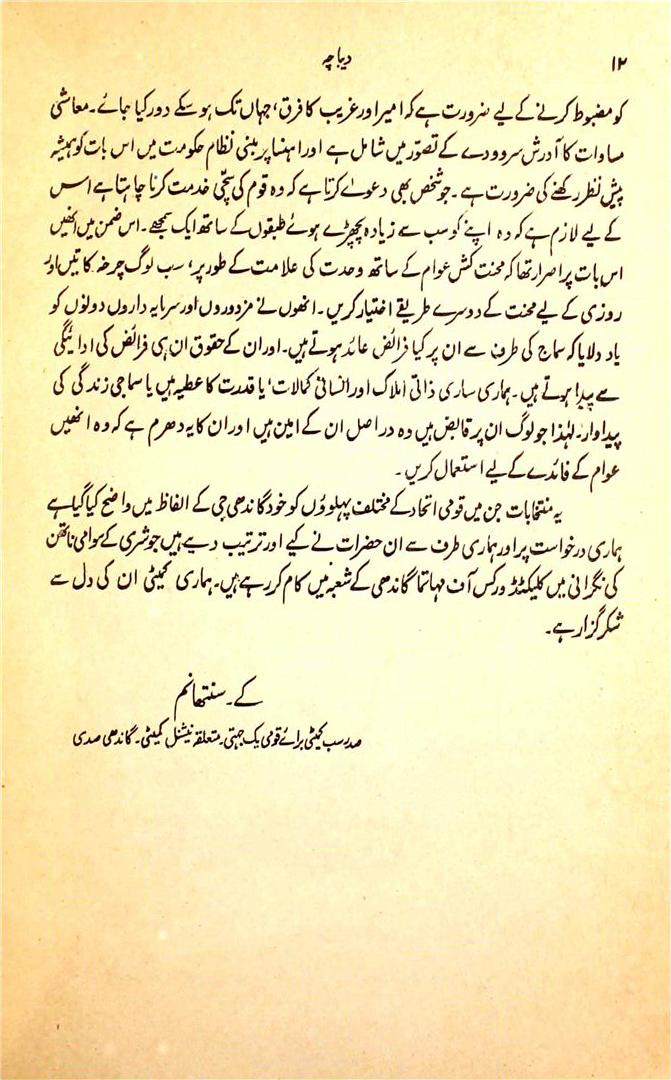 ۱۲
دیباچہ
کو مضبوط کرنے کے لیے ضرورت ہے کہ امیر اور غریب کا فرق، جہاں تک ہو سکے دور کیا جائے۔ معاشی
مساوات کا آدرش سروودے کے تصوّر میں شامل ہے اور اہنسا پر مبنی نظام حکومت میں اس بات کو ہمیشہ
پیش نظر رکھنے کی ضرورت ہے۔ جو شخص بھی دعوے کرتا ہے کہ وہ قوم کی سچّی خدمت کرنا چاہتا ہے اس
کے لیے لازم ہے کہ وہ اپنے کو سب سے زیادہ پچھڑے ہوئے طبقوں کے ساتھ ایک سمجھے۔ اس ضمن میں انھیں
اس بات پر اصرار تھا کہ محنت کش عوام کے ساتھ وحدت کی علامت کے طور پر، سب لوگ چرخہ کاتیں اور
روزی کے لیے محنت کے دوسرے طریقے اختیار کریں۔ انھوں نے مزدوروں اور سرمایہ داروں دونوں کو
یاد دلایا کہ سماج کی طرف سے ان پر کیا فرائض عائد ہوتے ہیں۔ اور ان کے حقوق ان ہی فرائض کی ادائیگی
سے پیدا ہوتے ہیں۔ ہماری ساری ذاتی املاک اور انسانی کمالات، یا قدرت کا عطیہ ہیں یا سماجی زندگی کی
پیداوار۔ لہٰذا جو لوگ ان پر قابض ہیں وہ دراصل ان کے امین ہیں اور ان کا یہ دھرم ہے کہ وہ انھیں
عوام کے فائدے کے لیے استعمال کریں۔
یہ منتخابات جن میں قومی اتحاد کے مختلف پہلوؤں کو خود گاندھی جی کے الفاظ میں واضح کیا گیا ہے
ہماری درخواست پر اور ہماری طرف سے ان حضرات نے کیے اور ترتیب دیے ہیں جو شری کے سوامی ناتھن
کی نگرانی میں کلیکٹڈ ورکس آف مہاتما گاندھی کے شعبہ میں کام کر رہے ہیں۔ ہماری کمیٹی ان کی دل سے
شکر گزار ہے۔
کے۔ سنتھانم
صدر سب کمیٹی برائے قومی یک جہتی۔ متعلقہ نیشنل کمیٹی۔ گاندھی صدی